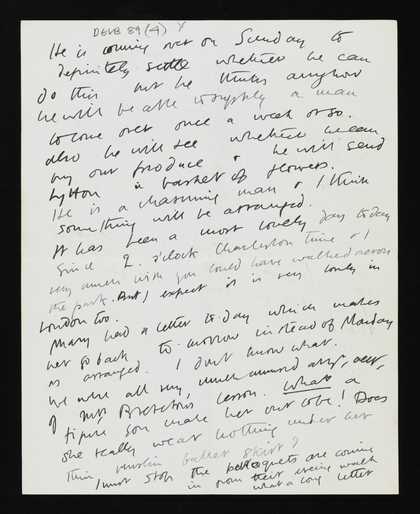 He is coming over on Sunday to
definitely settle whether he can
do this but he thinks anyhow
he will be able to supply a man
to come over once a week or so.
also he will see whether he can
buy our produce & he will send
Lytton a basket of flowers.
He is a charming man & I think
something will be arranged.
It has been a most lovely day to day
since 9. o'clock Charleston time & I
very much wish you could have walked across
the park. But I expect it is very lovely in
London too.
Mary had a letter to day which makes
her go back to-morrow instead of Monday
as arranged. I don't know what.
We were all very much amused at yr acct,
of Mrs Brereton's lesson. What a
figure you make her out to be! Does
she really wear nothing under her
thin muslin ballet skirt?
I must stop the paroquets are coming
in from their evening walk
what a long letter